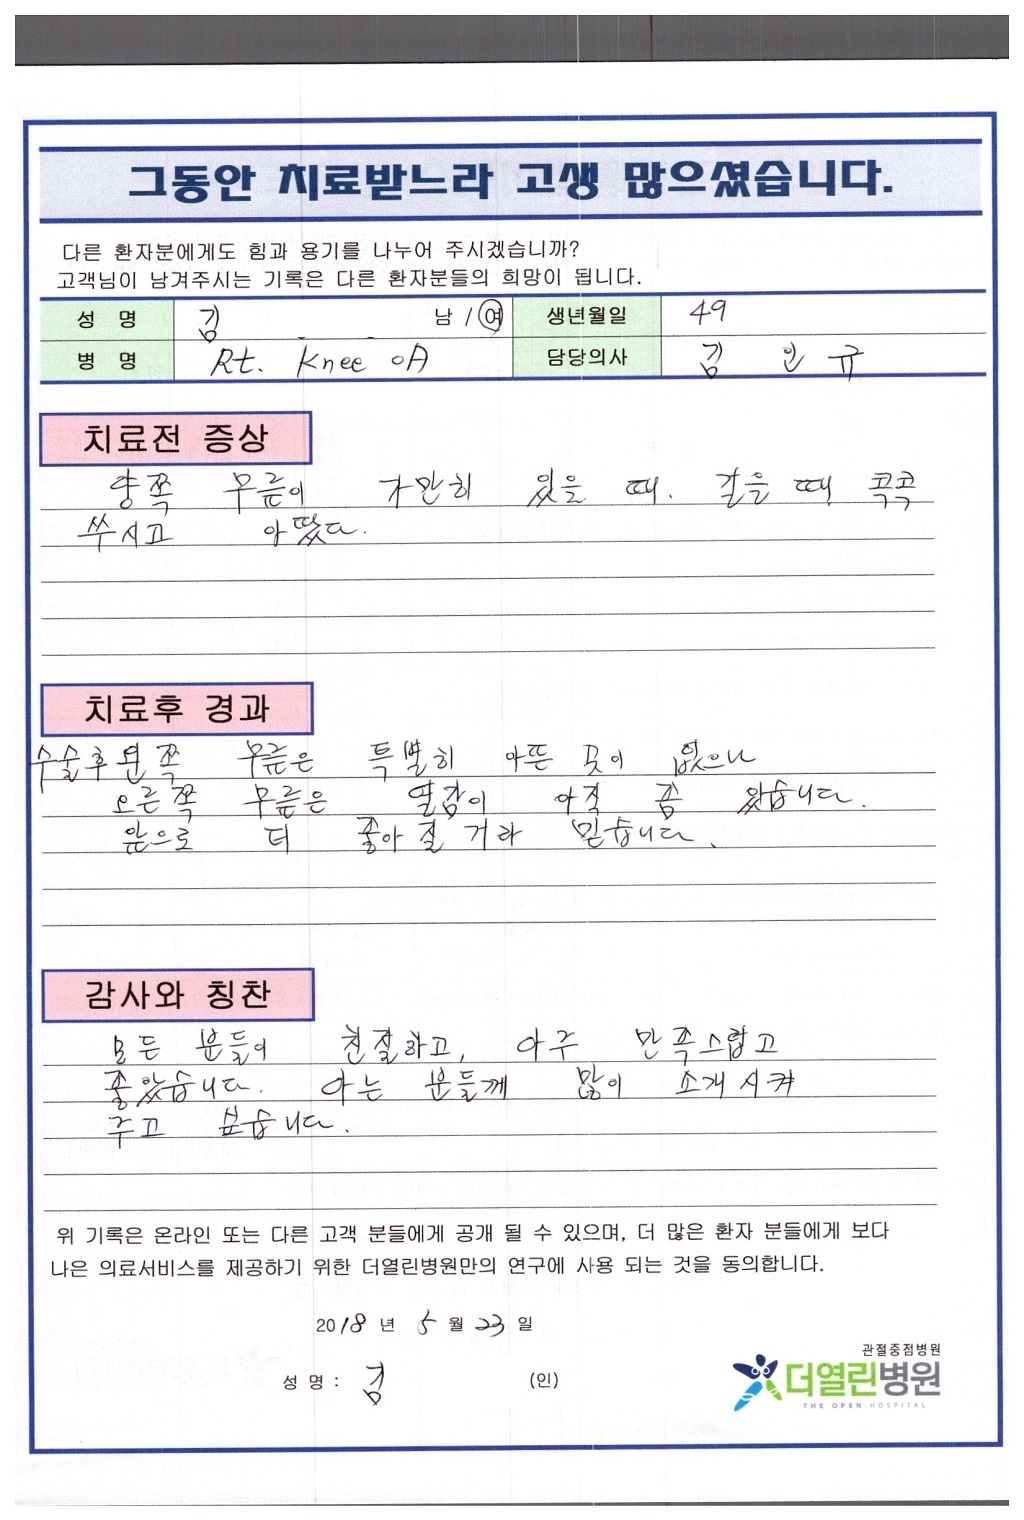 그동안 치료받느라 고생 많으셨습니다.
다른 환자분에게도 힘과 용기를 나누어 주시겠습니까?
고객님이 남겨주시는 기록은 다른 환자분들의 희망이 됩니다.
성 명 김 남 / 여 생년월일 49
병 명 Rt. Knee OA 담당의사 김 인 규
치료전 증상
양쪽 무릎이 가만히 있을 때. 걸을 때 콕콕
쑤시고 아팠다.
치료후 경과
수술후 왼쪽 무릎은 특별히 아픈 곳이 없으나
오른쪽 무릎은 열감이 아직 쫌 있습니다.
앞으로 더 좋아 질 거라 믿습니다.
감사와 칭찬
모든 분들이 친절하고, 아주 만족스럽고
좋았습니다. 아는 분들께 많이 소개시켜
주고 싶습니다.
위 기록은 온라인 또는 다른 고객 분들에게 공개 될 수 있으며, 더 많은 환자 분들에게 보다
나은 의료서비스를 제공하기 위한 더열린병원만의 연구에 사용 되는 것을 동의합니다.
2018 년 5 월 23 일
성 명 : 김 (인)
관절중점병원
더열린병원
THE OPEN HOSPITAL